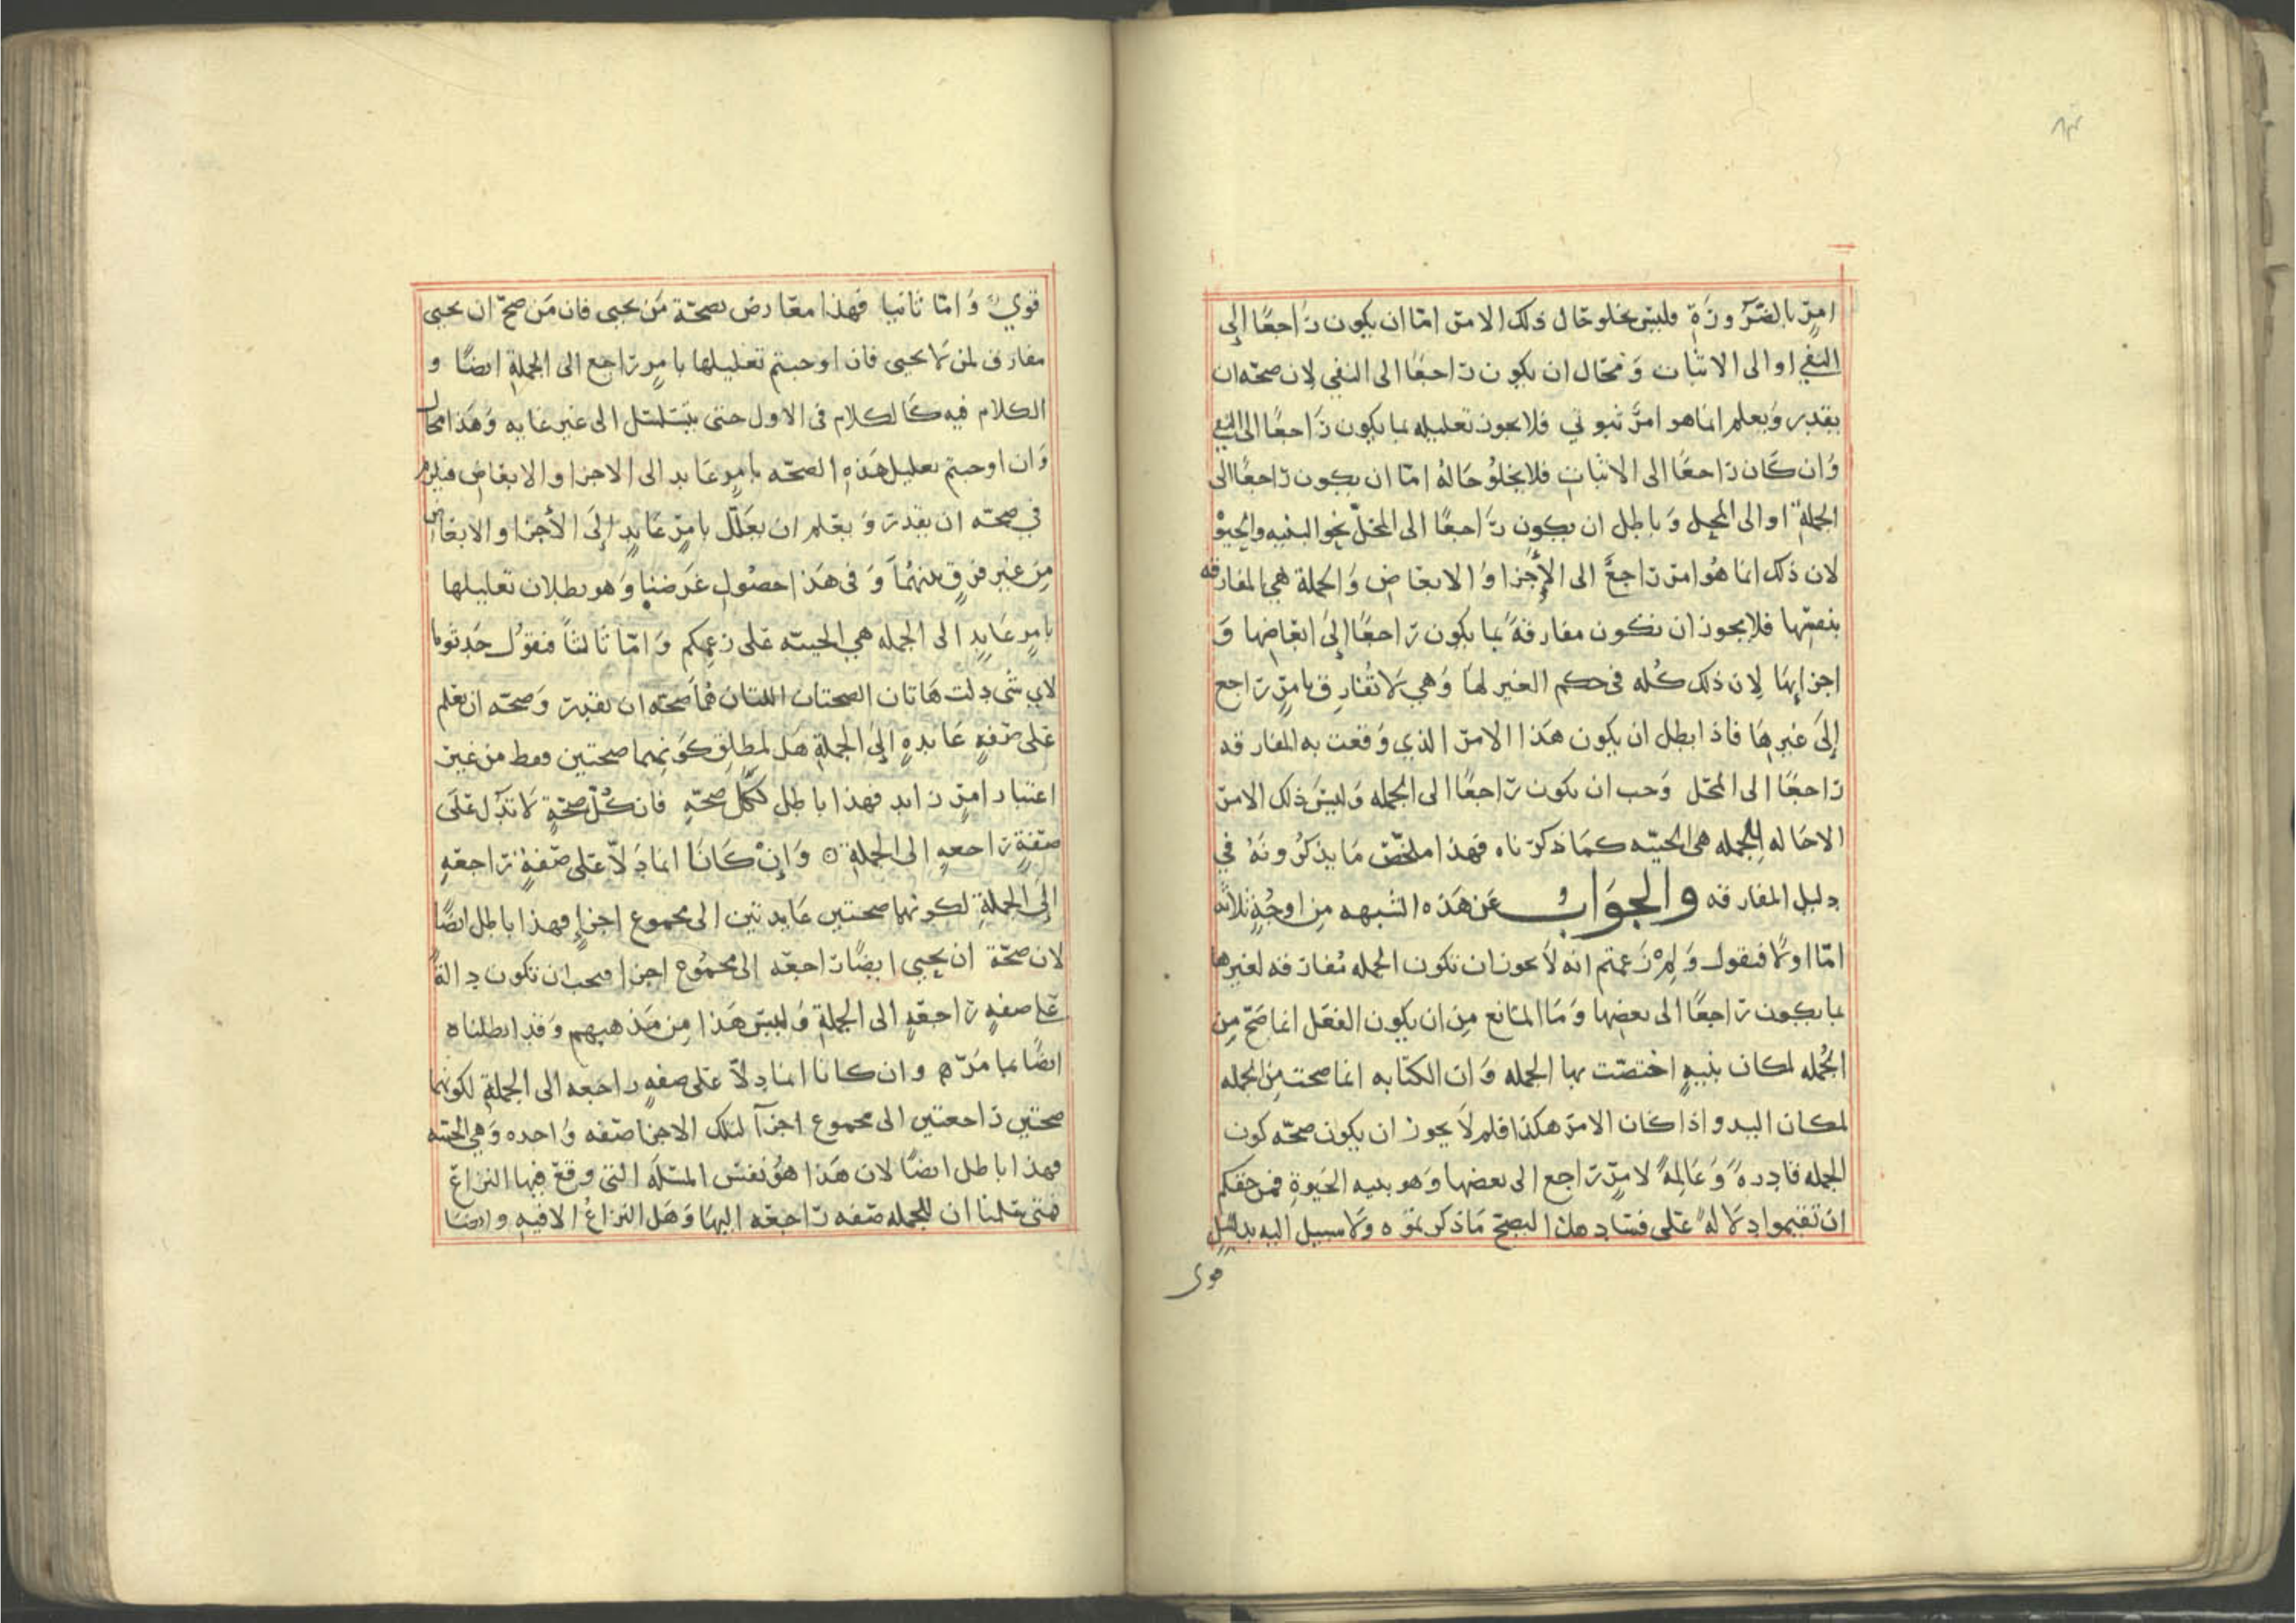 امرٍ بالضرورةِ وليس يخلو حال ذلك الامر امّا ان يكون راجعًا إلى
النفي او الى الاثبات وَمحَال ان يكون راجعًا الى النفي لان صحّه ان
يقدر وَيعلم انما هو امرٌ ثبوتي فلا يجوز تعليله بما يكون رَاجعًا الى النفي
وَان كَان راجعًا الى الاثبات فلا يخلُو حَالهُ امّا ان يكون راجعًا الى
الجملةِ او الى المحل وَباطل ان يكون رَاجعًا الى المحلّ نحو البنيه والحيوة
لان ذلك انما هُوَ امر راجعٌ الى الأجزا وَالابعاض وَالجملة هي المفارقه
بنفسها فلا يجوز ان تكون مفارقةً بما يكون رَاجعًا إلىَ ابعَاضها وَ
اجزايهَا لِان ذلك كُله في حكم الغير لهَا وَهي لَا تُفَارِق بامرٍ رَاجع
إلىَ غيرِهَا فاذا بطل ان يكون هَذا الامرَ الذي وَقعت به المفارقه
رَاجعًا الى المحَل وَجب ان يكون رَاجعًا الى الجمله وَليسَ ذلك الامر
الا حَاله للجمله هي الحييّه كمَا ذكرناه فهَذا ملخّص مَا يذكرُونَهُ في
دليل المفارقه والجوَابُ عَن هَذه الشبهه مِن اوجُهٍ ثلاثه
امّا اولًا فنقول وَلِمْ زَعمتم انه لَا يجوز ان تكون الجمله مُفارقه لغيرها
بما يكون رَاجعًا الى بعضِها وَمَا المَانع مِن ان يكون الفعَل انما صَحّ مِن
الجُمله لمكان بنيهٍ اختصّت بها الجمله وَان الكتابه انما صحت مِن الجمله
لمكان اليد واذا كان الامرَ هكذا فلم لَا يجوز ان يكون صحّه كون
الجمله قادِرهً وَعَالِمهً لامرٍ رَاجع الى بعضها وَهو بنيه الحَيوةِ فمن حقكم
ان تقيموا دِلَالهً عَلى فسَادِ هذا ليصحّ مَا ذكرتموه وَلَا سبيل اليه بدليلٍ
قوى
قويٍ وَامّا ثانيا فهَذا معَارض بصحّة مَن يحيى فان مَن صحّ ان يحيى
مفارق لمن لَا يحيى فان اوجبتم تعليلها بامرٍ رَاجع الى الجملةِ ايضًا و
الكلام فيه كَالكلام في الاول حتى يتسلسل الى غير غايه وَهَذا محال
وَان اوجبتم تعليل هَذِه الصحّه بامرٍ عَايد الى الاجزا والابعَاض فيلزم
في صحّه ان يقدرَ وَيعَلم ان يعَلّل بامرٍ عَايدٍ إلىَ الأجزا والابعاض
مِن غير فرقٍ بينهُمَا وَفي هَذا حصُول غَرضنا وَهو بطلان تعليلها
بامرٍ عَايدٍ الى الجمله هي الحييّه عَلى زعمِكم وَامّا ثَالثاً فنقول حَدِثونا
لاي شى دِلت هَاتان الصحتان اللتان هُمَا صَحّه ان يقدِر وَصحّه ان يَعلم
عَلى صفهٍ عَايدهٍ إلىَ الجملةِ هَل لمطلق كَونهما صحتين فقط من غير
اعتبار امرٍ زايد فهذا باطل لكل صحّهٍ فان كُلّ صحَّةٍ لَا تدُل عَلَى
صفةٍ رَاجعهٍ الى الجملةِ ۞ وَإنْ كَانَا انمادَلّا عَلى صفةٍ رَاجعَهٍ
إلىَ الجملةِ لكونهما صحتين عَايدتين الى مجموع اجزاءٍ فهذا باطل ايضًا
لان صحّة ان يحيى ايضًا رَاجعَه إلى مجمُوع اجزا فيجب ان تكون دِالةً
عَلى صفهٍ رَاجعَهٍ الى الجملةِ وَليسَ هَذا مِن مَذهبهم وَقد ابطلناه
ايضًا بما مَرّ ۞ وان كانا انمادِلّا عَلى صفهٍ راجعه الى الجملةِ لكونهما
صحّتين رَاجعتين الى مجموع اجزآ لتلك الاجزا صفه وَاحده وَهي الحييه
فهذا باطل ايضًا لان هَذا هُوَ نفسَ المسَئله التي وقعَ فيها النزاعَ
فمتى سَلمنا ان للجمله صفه رَاجعَه اليهَا وَهَل النزاعُ الا فيهِ وايضًا